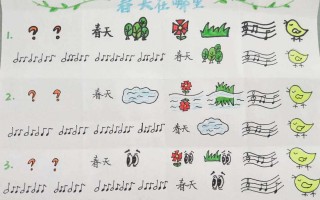 春天在哪里
1. ? ? 春天
春天
2. ? ? 春天
春天
3. ? ? 春天
春天